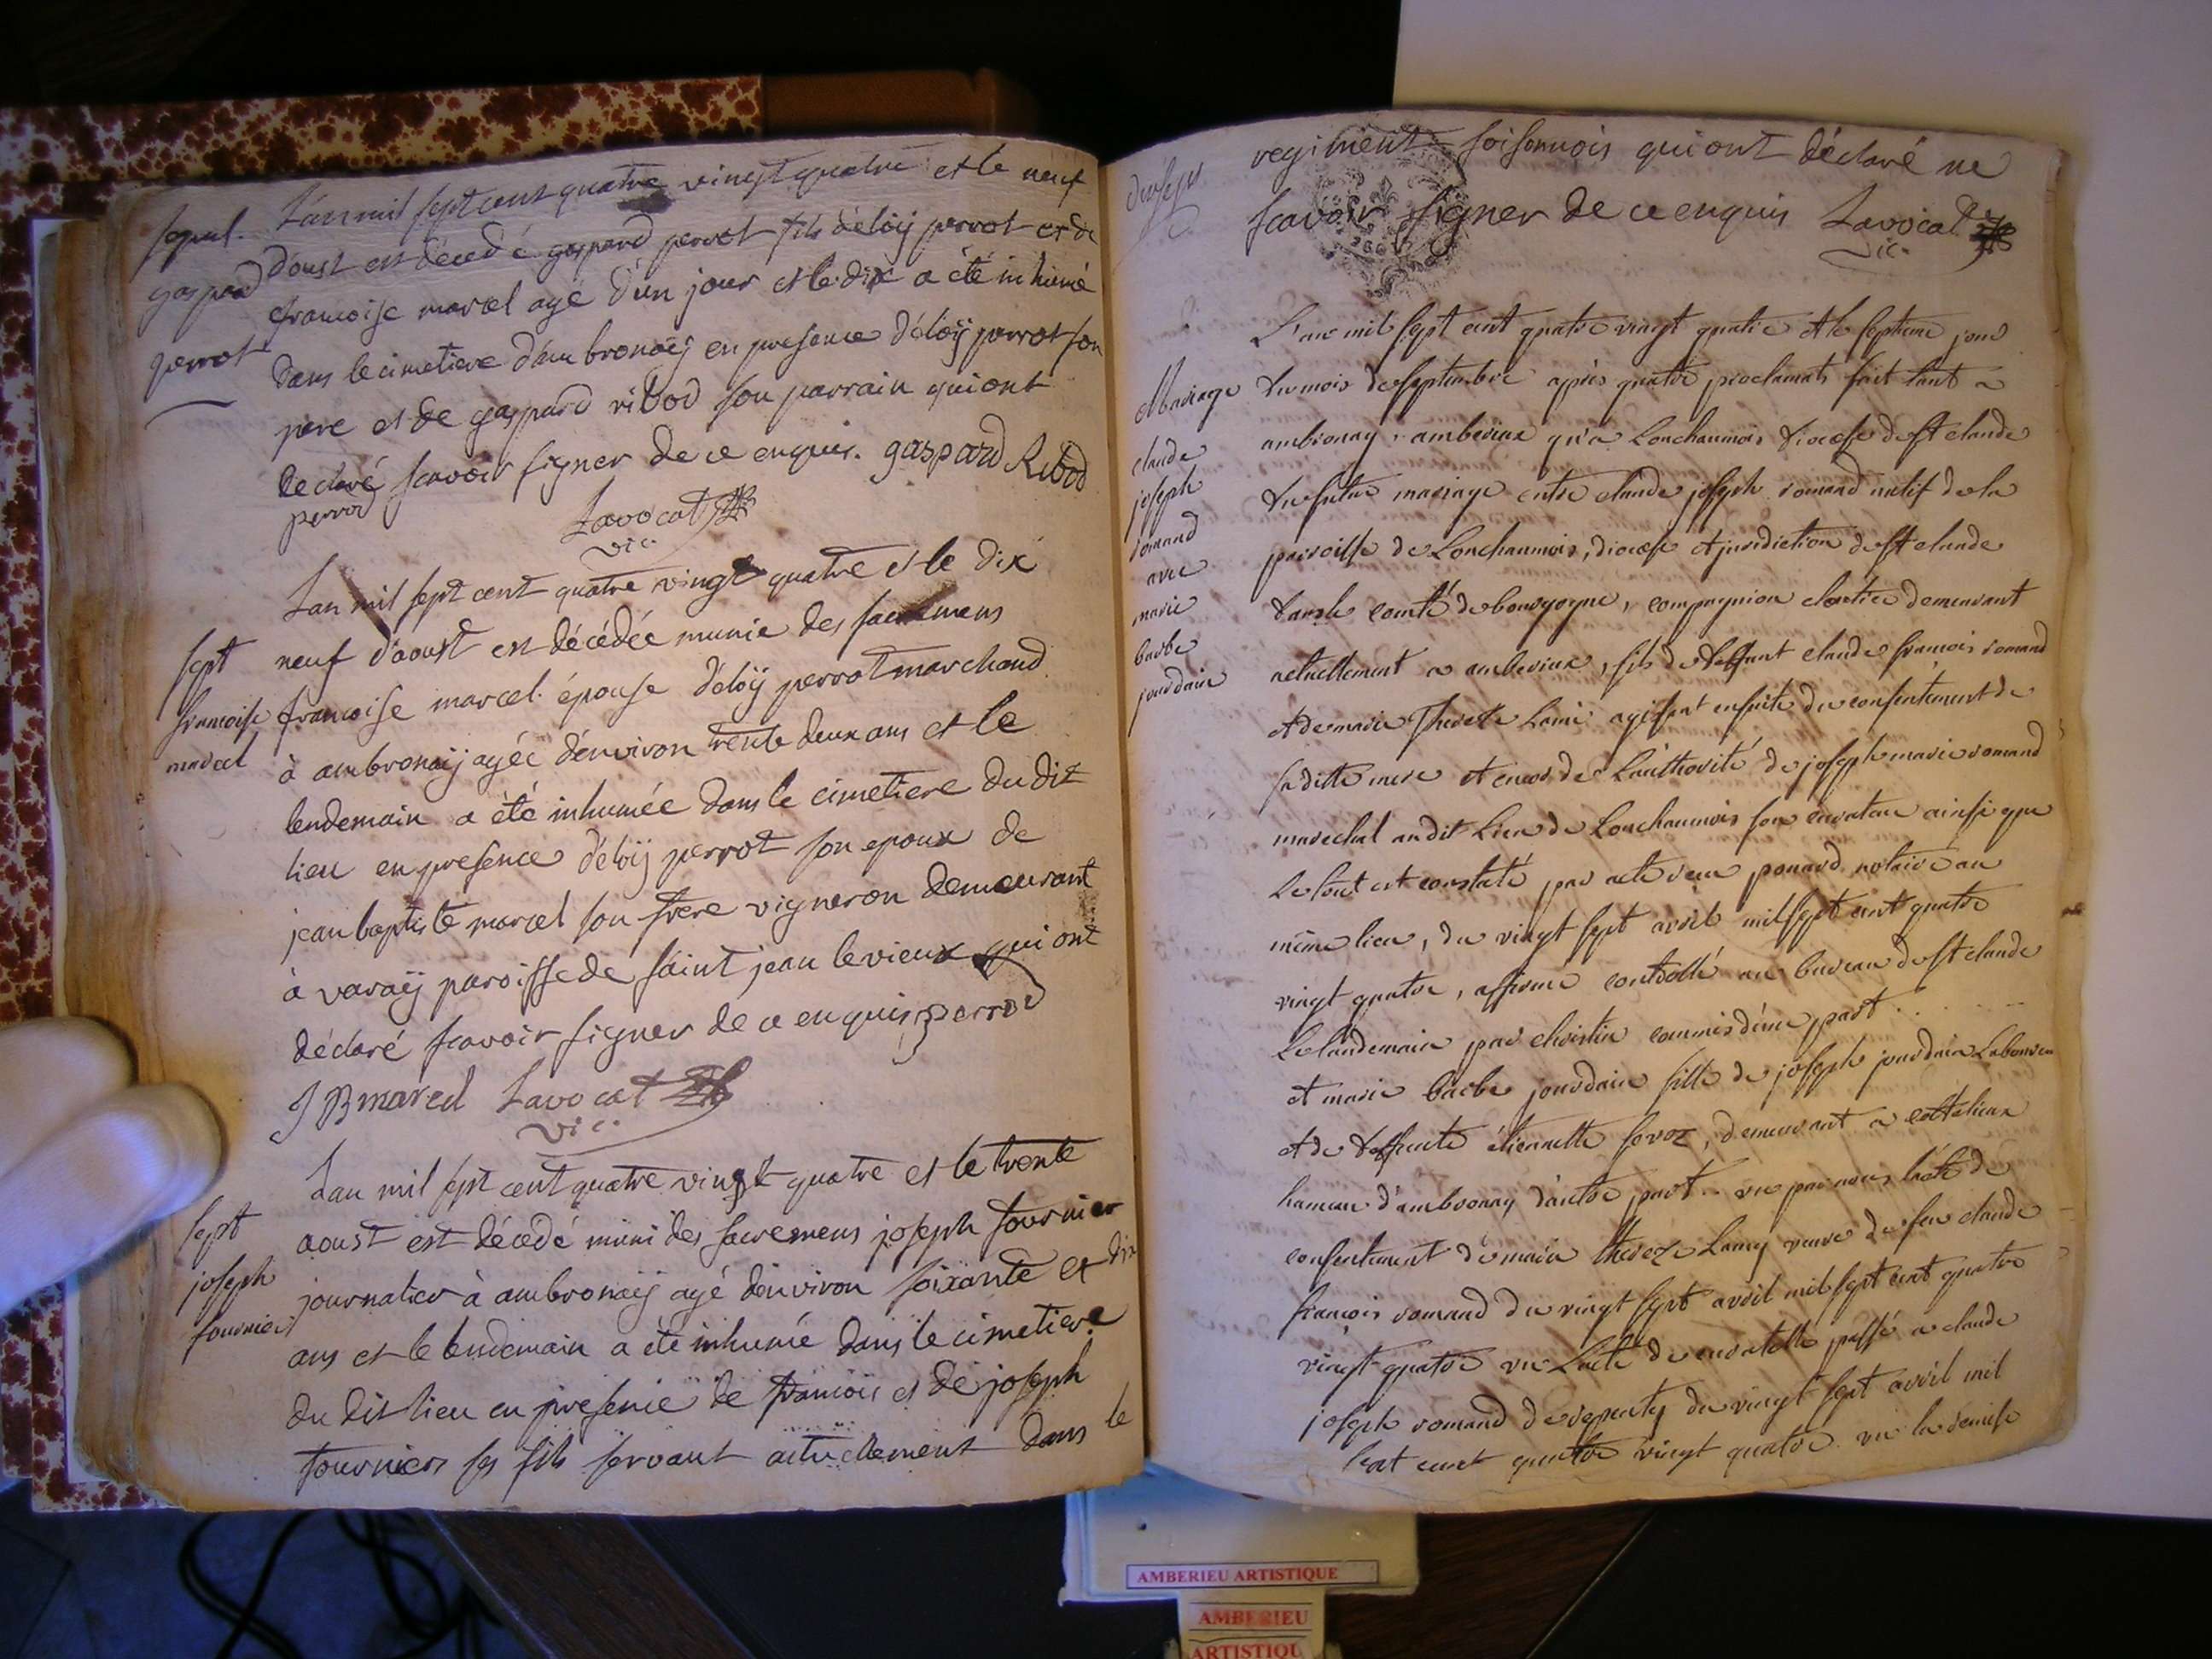 sepul.
gaspard
perrot
L'an mil sept cent quatre vingt quatre et le neuf
d'oust est décédé gaspard perrot fils d'éloÿ perrot et de
francoise marcel agé d'un jour et le dix a été inhumé
dans le cimetiere d'ambronaÿ en presence d'éloÿ perrot son
pere et de gaspard ribod son parrain qui ont
declaré scavoir signer de ce enquis. gaspard Ribod
perrod
Lavocat
vic.
Lan mil sept cent quatre vingt quatre et le dix
sept
francoise
marcel
neuf d'aoust est décédée munie des sacremens
francoise marcel épouse d'éloÿ perrot marchand
à ambronaÿ agéé d'environ trente deux ans et le
lendemain a été inhumée dans le cimetiere du dit
lieu en presence d'éloÿ perrot son epoux de
jean baptiste marcel son frere vigneron demeurant
à varaÿ paroisse de saint jean le vieux qui ont
déclaré scavoir signer de ce enquis perrod
J B marcel Lavocat
vic.
Lan mil sept cent quatre vingt quatre et le trente
sept
joseph
fournier
aoust est décédé muni des sacremens joseph fournier
journalier à ambronaÿ agé d'environ soixante et dix
ans et le lendemain a été inhumé dans le cimetiere
du dit lieu en presence de francois et de joseph
fournier ses fils servant actuellement dans le
regiment soisonnois qui ont déclaré ne
scavoir signer de ce enquis Lavocat
vic.
Mariage
claude
joseph
romand
avec
marie
barbe
jourdain
L'an mil sept cent quatre vingt quatre et le septieme jour
du mois de septembre après quatre proclamats fait tant a
ambronay, amberieux qu'a Lonchaumois diocese de st claude
du futur mariage entre claude joseph romand natif de la
paroisse de Lonchaumois, diocese et jurisdiction de st claude
dans le comté de bourgogne, compagnion demeurant
actuellement a amberieux, fils de deffunt claude francois romand
et de marie Therese Lami agissant ensuite du consentement de
sa ditte mere et encor de l'authorité de joseph marie romand
marechal audit lieu de Lonchaumois son curateur ainsi que
le tout est constaté par acte reçu ponard notaire au
même lieu, du vingt sept avril mil sept cent quatre
vingt quatre, controllé au bureau de st claude
le landemain par christin commis d'une part
et marie barbe jourdain fille de joseph jourdain Laboureur
et de deffunte étiennette, demeurant a
hameau d'ambronay d'autre part. vu par nous l'acte de
consentement de marie therese Lamy veuve de feu claude
françois romand du vingt sept avril mil sept cent quatre
vingt quatre vu l'acte de curatelle passé a claude
joseph romand du vingt sept avril mil
sept cent quatre vingt quatre vu la remise
AMBERIEU ARTISTIQUE
AMBERIEU
ARTISTIQU